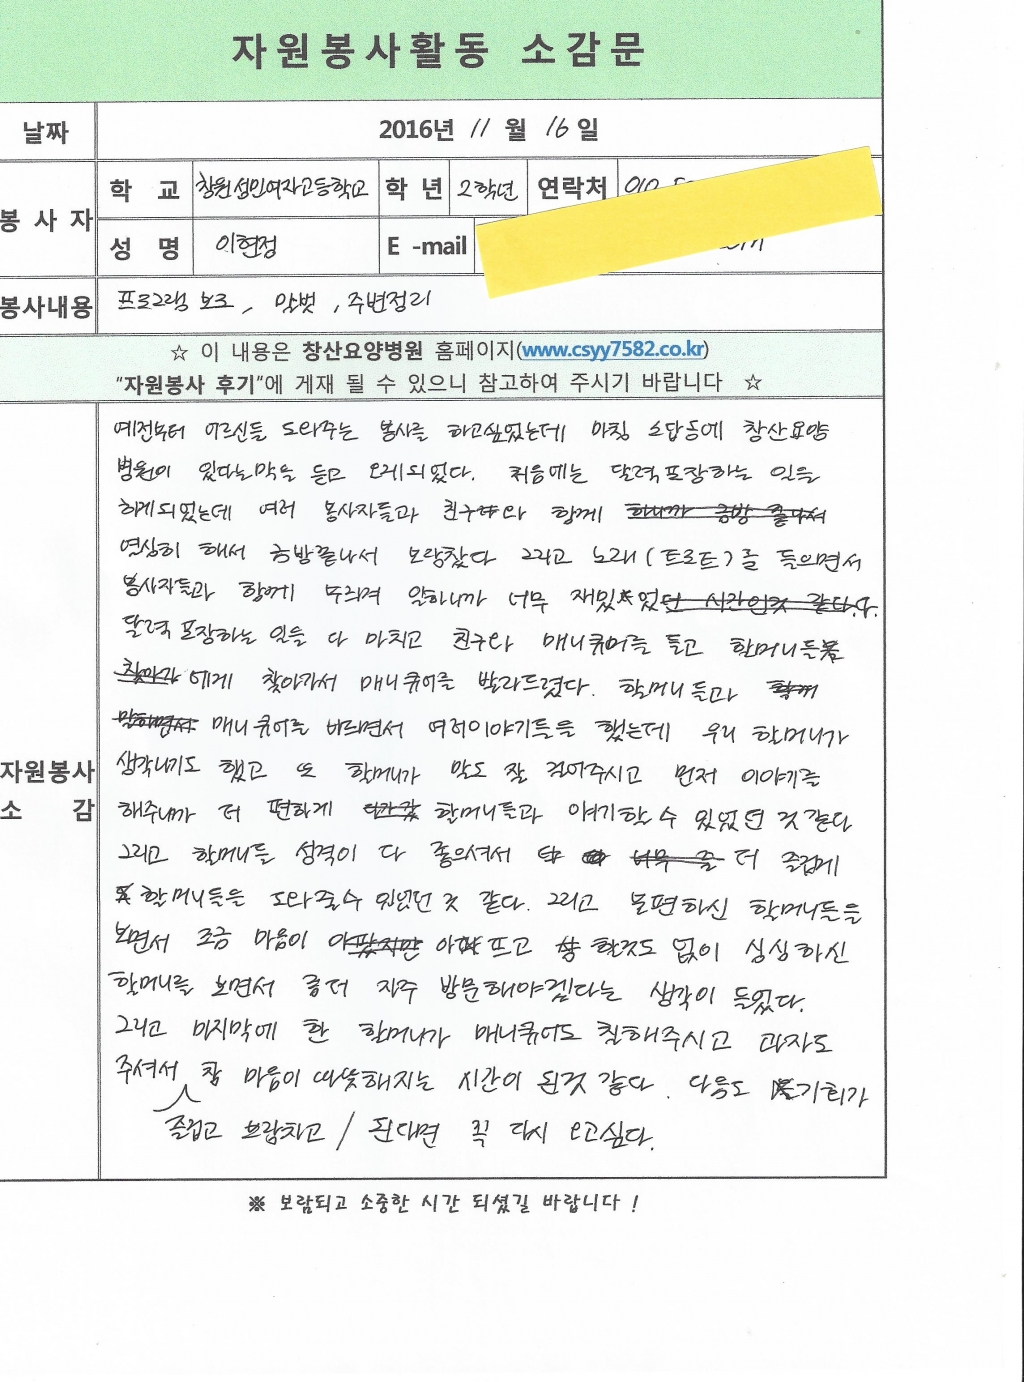 자원봉사활동 소감문
날짜 2016년 11월 16일
봉사자 학 교 창원성민여자고등학교 학 년 2학년 연락처 010
성 명 이현정 E -mail
봉사내용 프로그램 보조, 말벗, 주변정리
☆ 이 내용은 창산요양병원 홈페이지(www.csyy7582.co.kr)
"자원봉사 후기"에 게재 될 수 있으니 참고하여 주시기 바랍니다 ☆
자원봉사 소 감
예전부터 어르신들 도와주는 봉사를 하고싶었는데 마침 소답동에 창산요양
병원이 있다는말을 듣고 오게되었다. 처음에는 달력포장하는 일을
하게되었는데 여러 봉사자들과 친구와 함께 하니까 금방 끝나서
열심히 해서 금방끝나서 보람찼다 그리고 노래(트로트)를 들으면서
봉사자들과 함께 누리며 일하니까 너무 재밌었던 시간인것 같다.
달력포장하는 일을 다 마치고 친구와 매니큐어를 들고 할머니들
찾아가 에게 찾아가서 매니큐어를 발라드렸다. 할머니들과 함께
말하면서 매니큐어를 바르면서 여러이야기들을 했는데 우리 할머니가
생각나기도 했고 또 할머니가 말도 잘 걸어주시고 먼저 이야기를
해주니까 더 편하게 할머니들과 얘기할 수 있었던 것 같다
그리고 할머니들 성격이 다 좋으셔서 너무 즐 더 즐겁게
할머니들을 도와줄수 있었던 것 같다. 그리고 불편하신 할머니들을
보면서 조금 마음이 아팠지만 아프고 할것도 없이 심심하신
할머니를 보면서 좀더 자주 방문해야겠다는 생각이 들었다.
그리고 마지막에 한 할머니가 매니큐어도 칠해주시고 과자도
주셔서 참 마음이 따뜻해지는 시간이 된것 같다. 다음도 기회가
즐겁고 보람차고 / 된다면 꼭 다시 오고싶다.
※ 보람되고 소중한 시간 되셨길 바랍니다 !